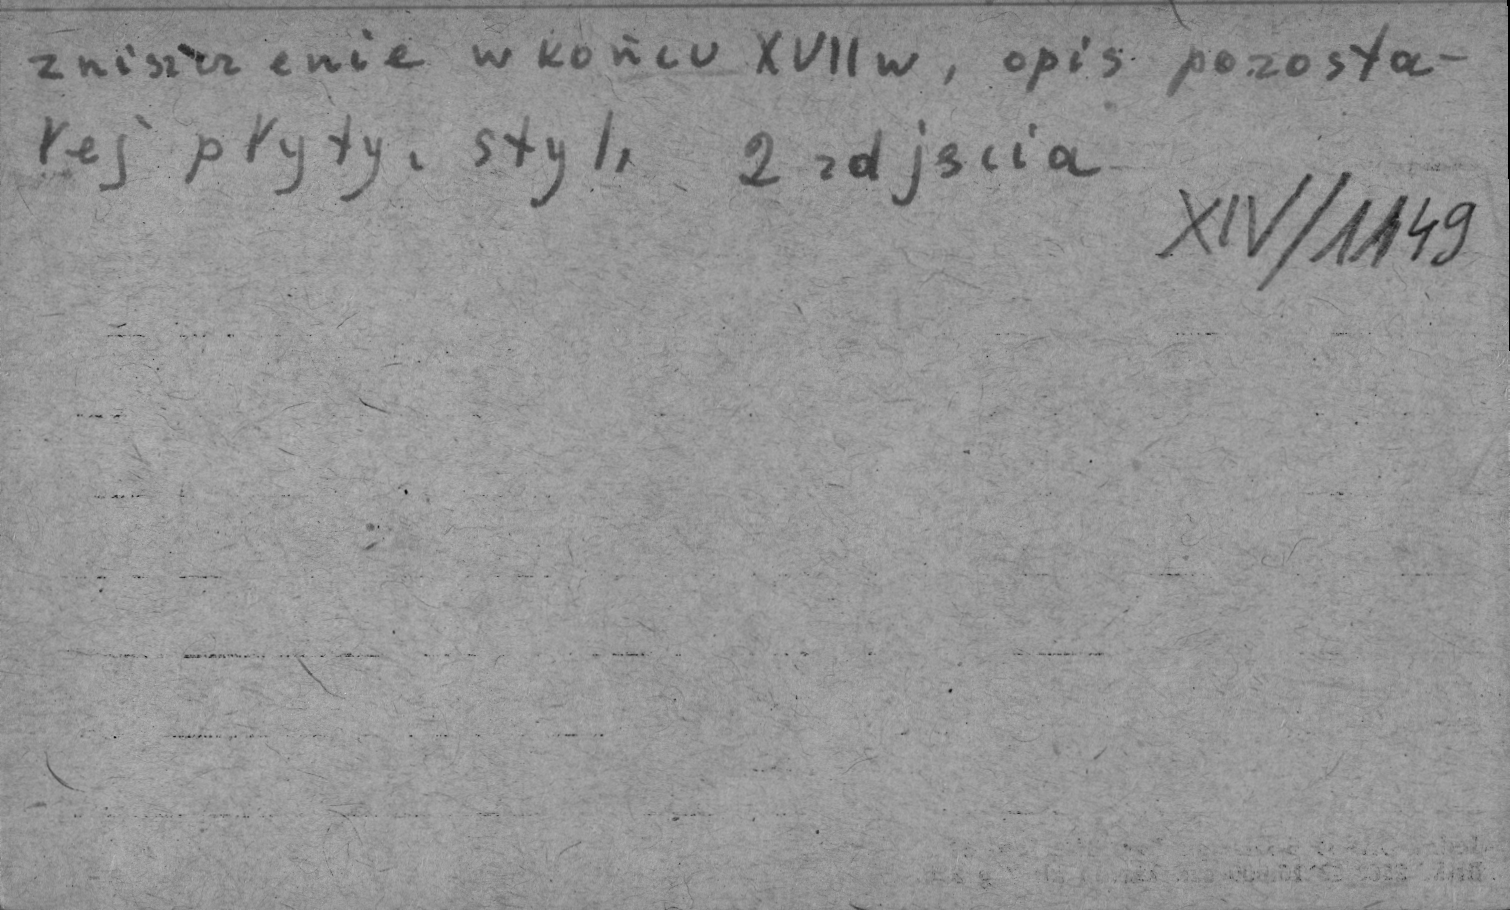 zniszczenie w końcu XVII w, opis pozosta-
łej płyty. styl, 2 zdjscia
XIV/1149